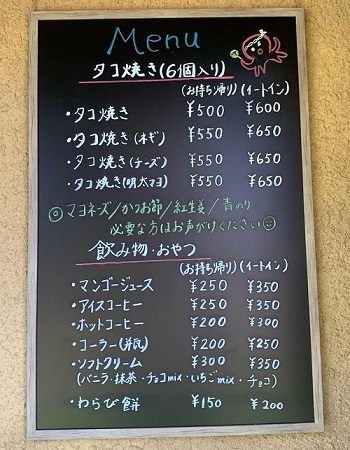 Menu
タコ焼き(6個入り)
(お持ち帰り) (イートイン)
・タコ焼き ¥500 ¥600
・タコ焼き(ネギ) ¥550 ¥650
・タコ焼き(チーズ) ¥550 ¥650
・タコ焼き(明太マヨ) ¥550 ¥650
◎マヨネーズ/かつお節/紅生姜/青のり
必要な方はお声がけください☺
飲み物・おやつ
(お持ち帰り) (イートイン)
・マンゴージュース ¥250 ¥350
・アイスコーヒー ¥250 ¥350
・ホットコーヒー ¥200 ¥300
・コーラー(井瓦) ¥200 ¥250
・ソフトクリーム ¥300 ¥350
(バニラ・抹茶・チョコmix・いちごmix・チョコ)
・わらび餅 ¥150 ¥200